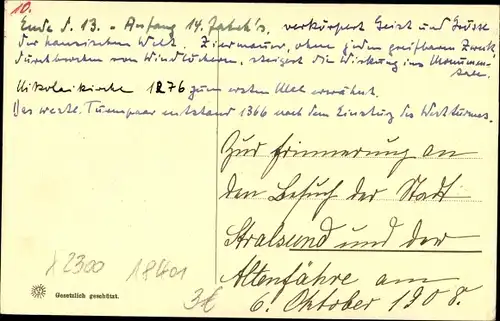 10.
Ende d. 13. - Anfang 14. Jahrh's, verkörpert Geist und Grösse
der hansischen Welt. Ziermauer, ohne jeden greifbaren Zweck,
durchbrochen von Windlöchern, steigert die Wirkung ins Monumen-
tale.
Nikolaikirche 1276 zum ersten Mal erwähnt.
Das westl. Turmpaar entstand 1366 nach dem Einsturz des Westturmes.
Zur Erinnerung an
den Besuch der Stadt
Stralsund und der
Altenfähre am
6. Oktober 1908.
2300 18401
3€
Gesetzlich geschützt.